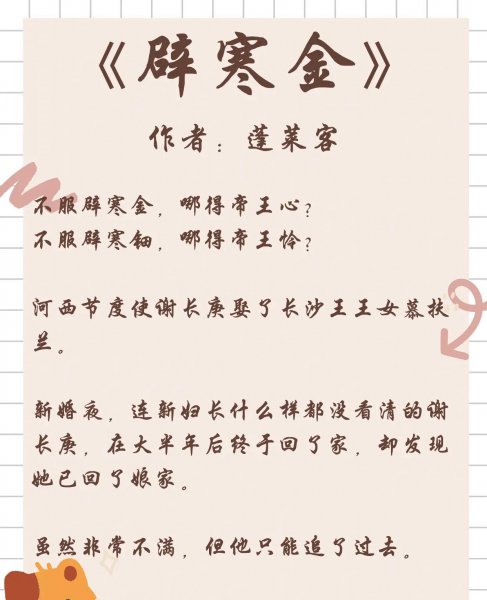 《辟寒金》
作者：蓬莱客
不服辟寒金，哪得帝王心？
不服辟寒钿，哪得帝王怜？
河西节度使谢长庚娶了长沙王王女慕扶
兰。
新婚夜，连新妇长什么样都没看清的谢
长庚，在大半年后终于回了家，却发现
她已回了娘家。
虽然非常不满，但他只能追了过去。